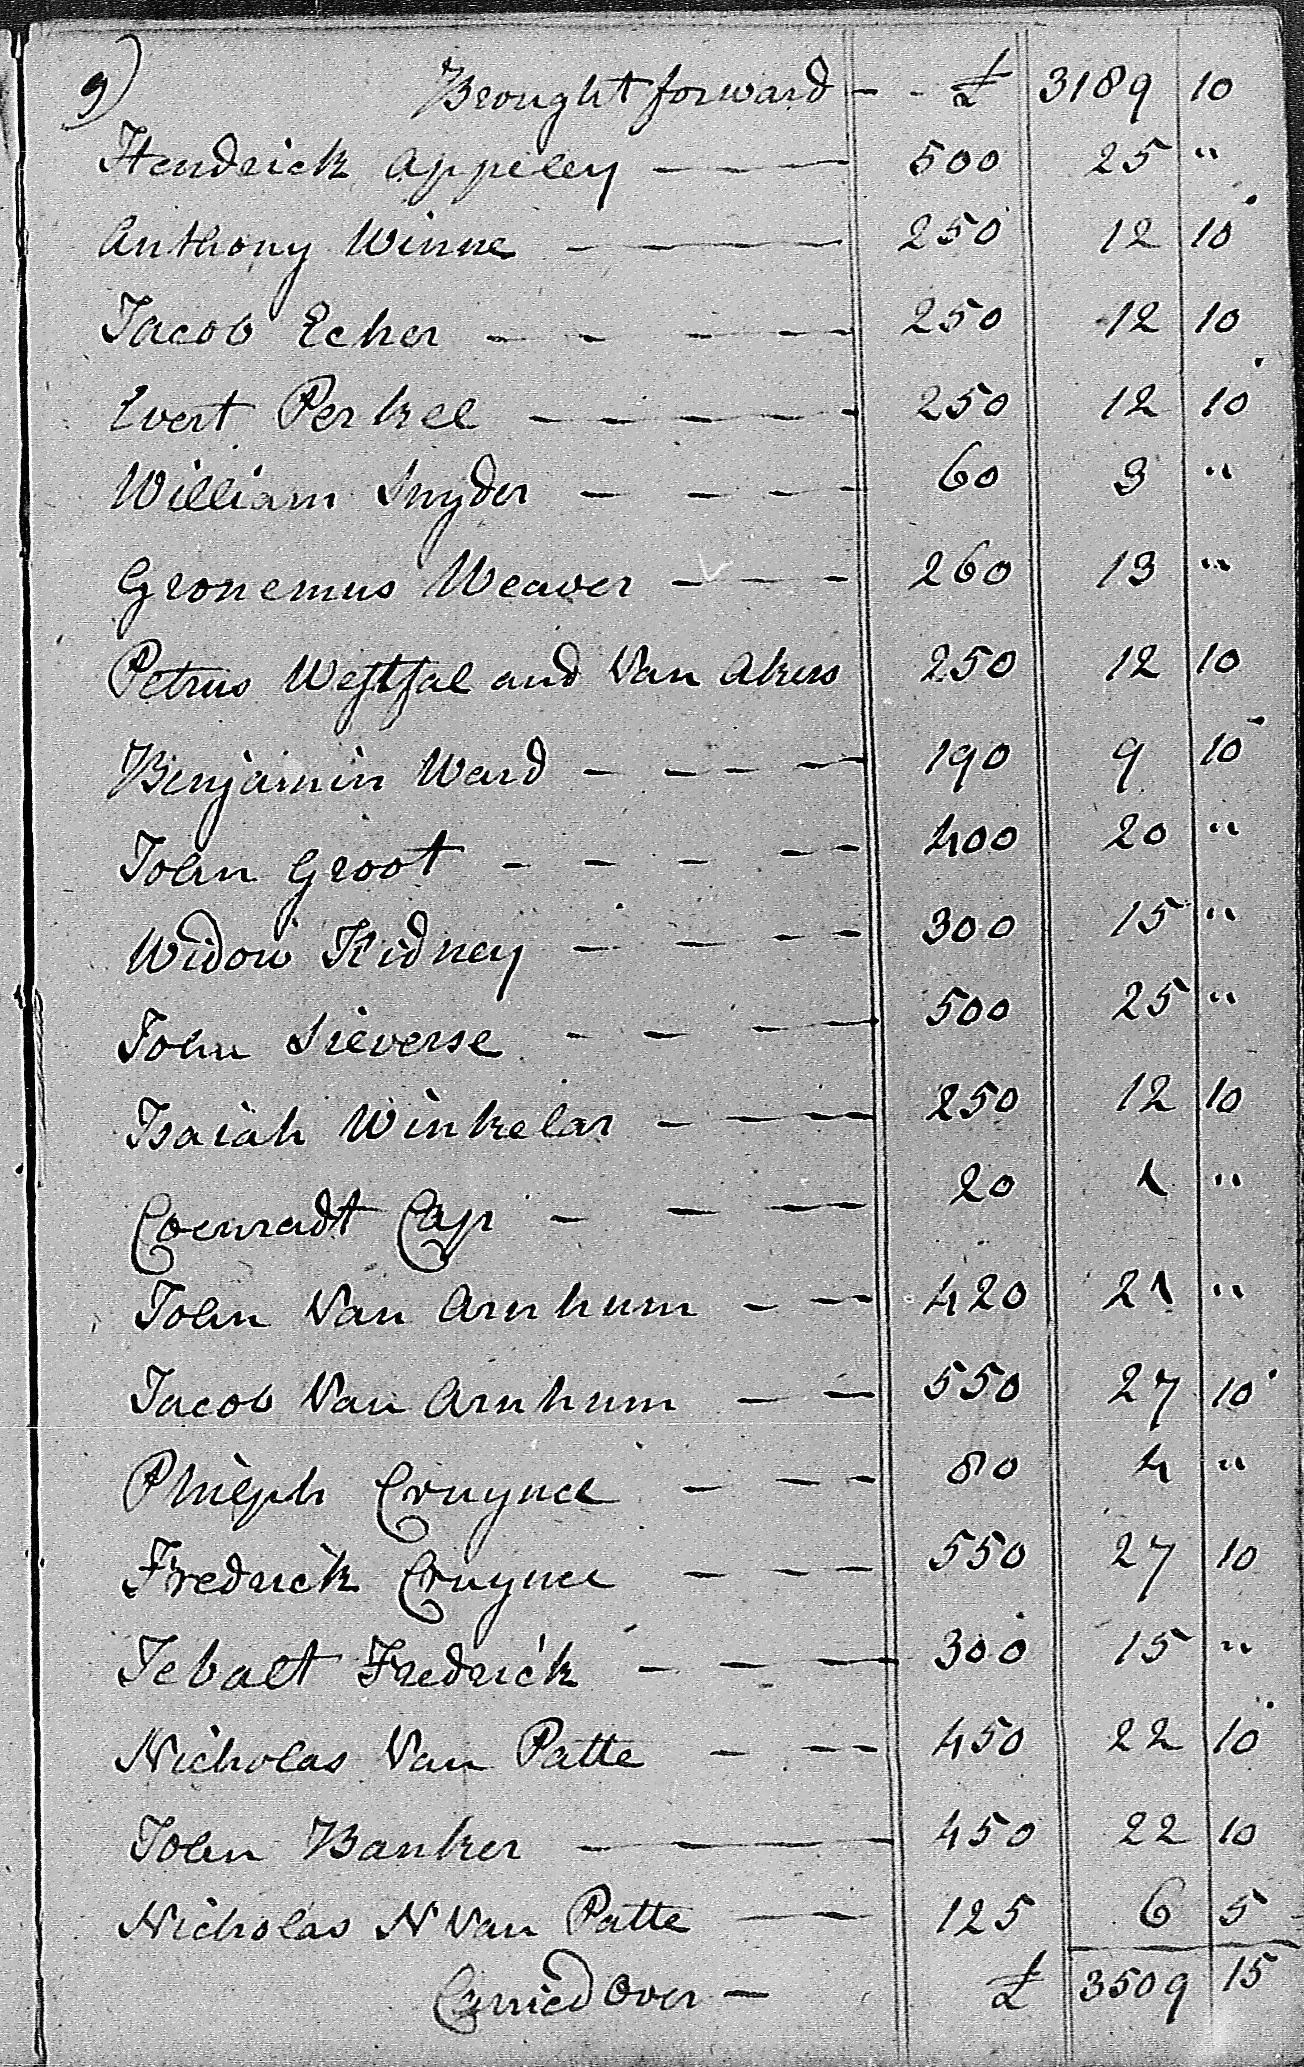 9) Brought forward - - £ 3189 10
Hendrick Appeley 500 25 "
Anthony Winne 250 12 10
Jacob Echer 250 12 10
Evert Perkel 250 12 10
William Snyder 60 3 "
Gronemus Weaver 260 13 "
Petrus Westfal and Van Akers 250 12 10
Benjamin Ward 190 9 10
John Groot 400 20 "
Widow Kidney 300 15 "
John Sieverse 500 25 "
Isaiah Winkelar 250 12 10
Coenradt Cap 20 1 "
John Van Arnhum 420 21 "
Jacob Van Arnhum 550 27 10
Philiph Cruynel 80 4 "
Fredrick Cruynel 550 27 10
Tebalt Fredrick 300 15 "
Nicholas Van Patte 450 22 10
John Banker 450 22 10
Nicholas N Van Patte 125 6 5
Carried Over - £ 3509 15